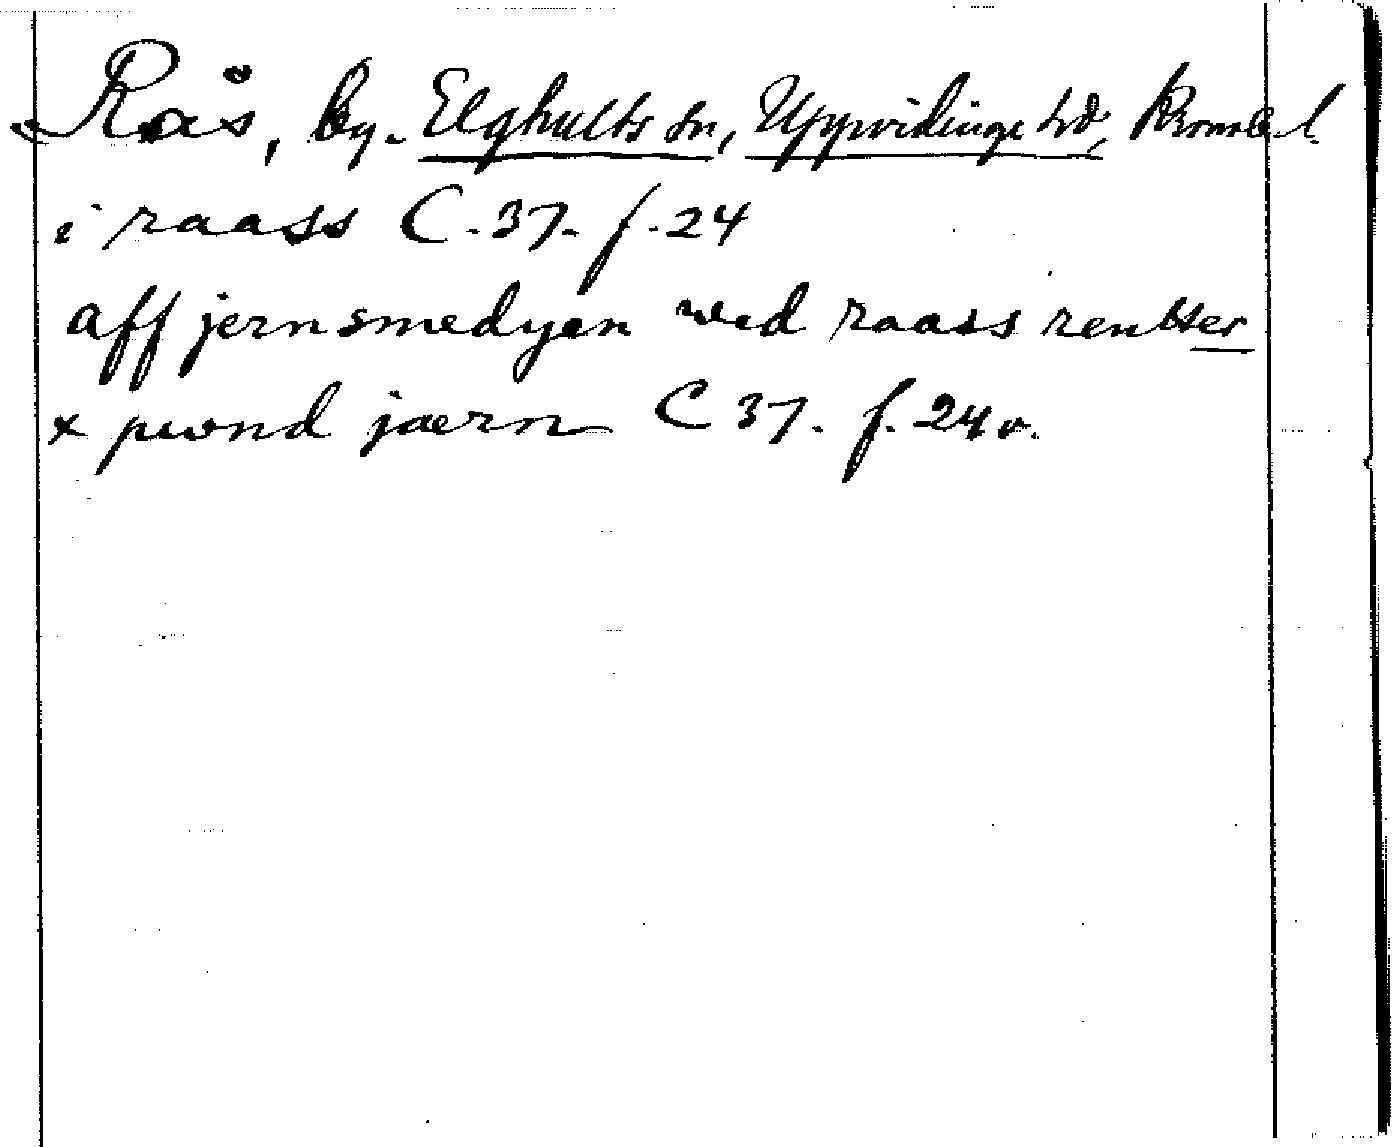 Rås, by. Elghults sn, Uppvidinge hd, Kronob. l.
i raass C. 37. f. 24
aff jernsmedyen wed raass rentter
x pwnd jærn C 37. f. 24 v.